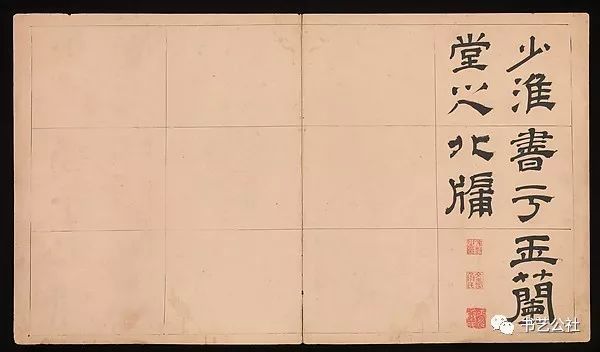 少淮書于玉蘭
堂之北牖
书艺公社